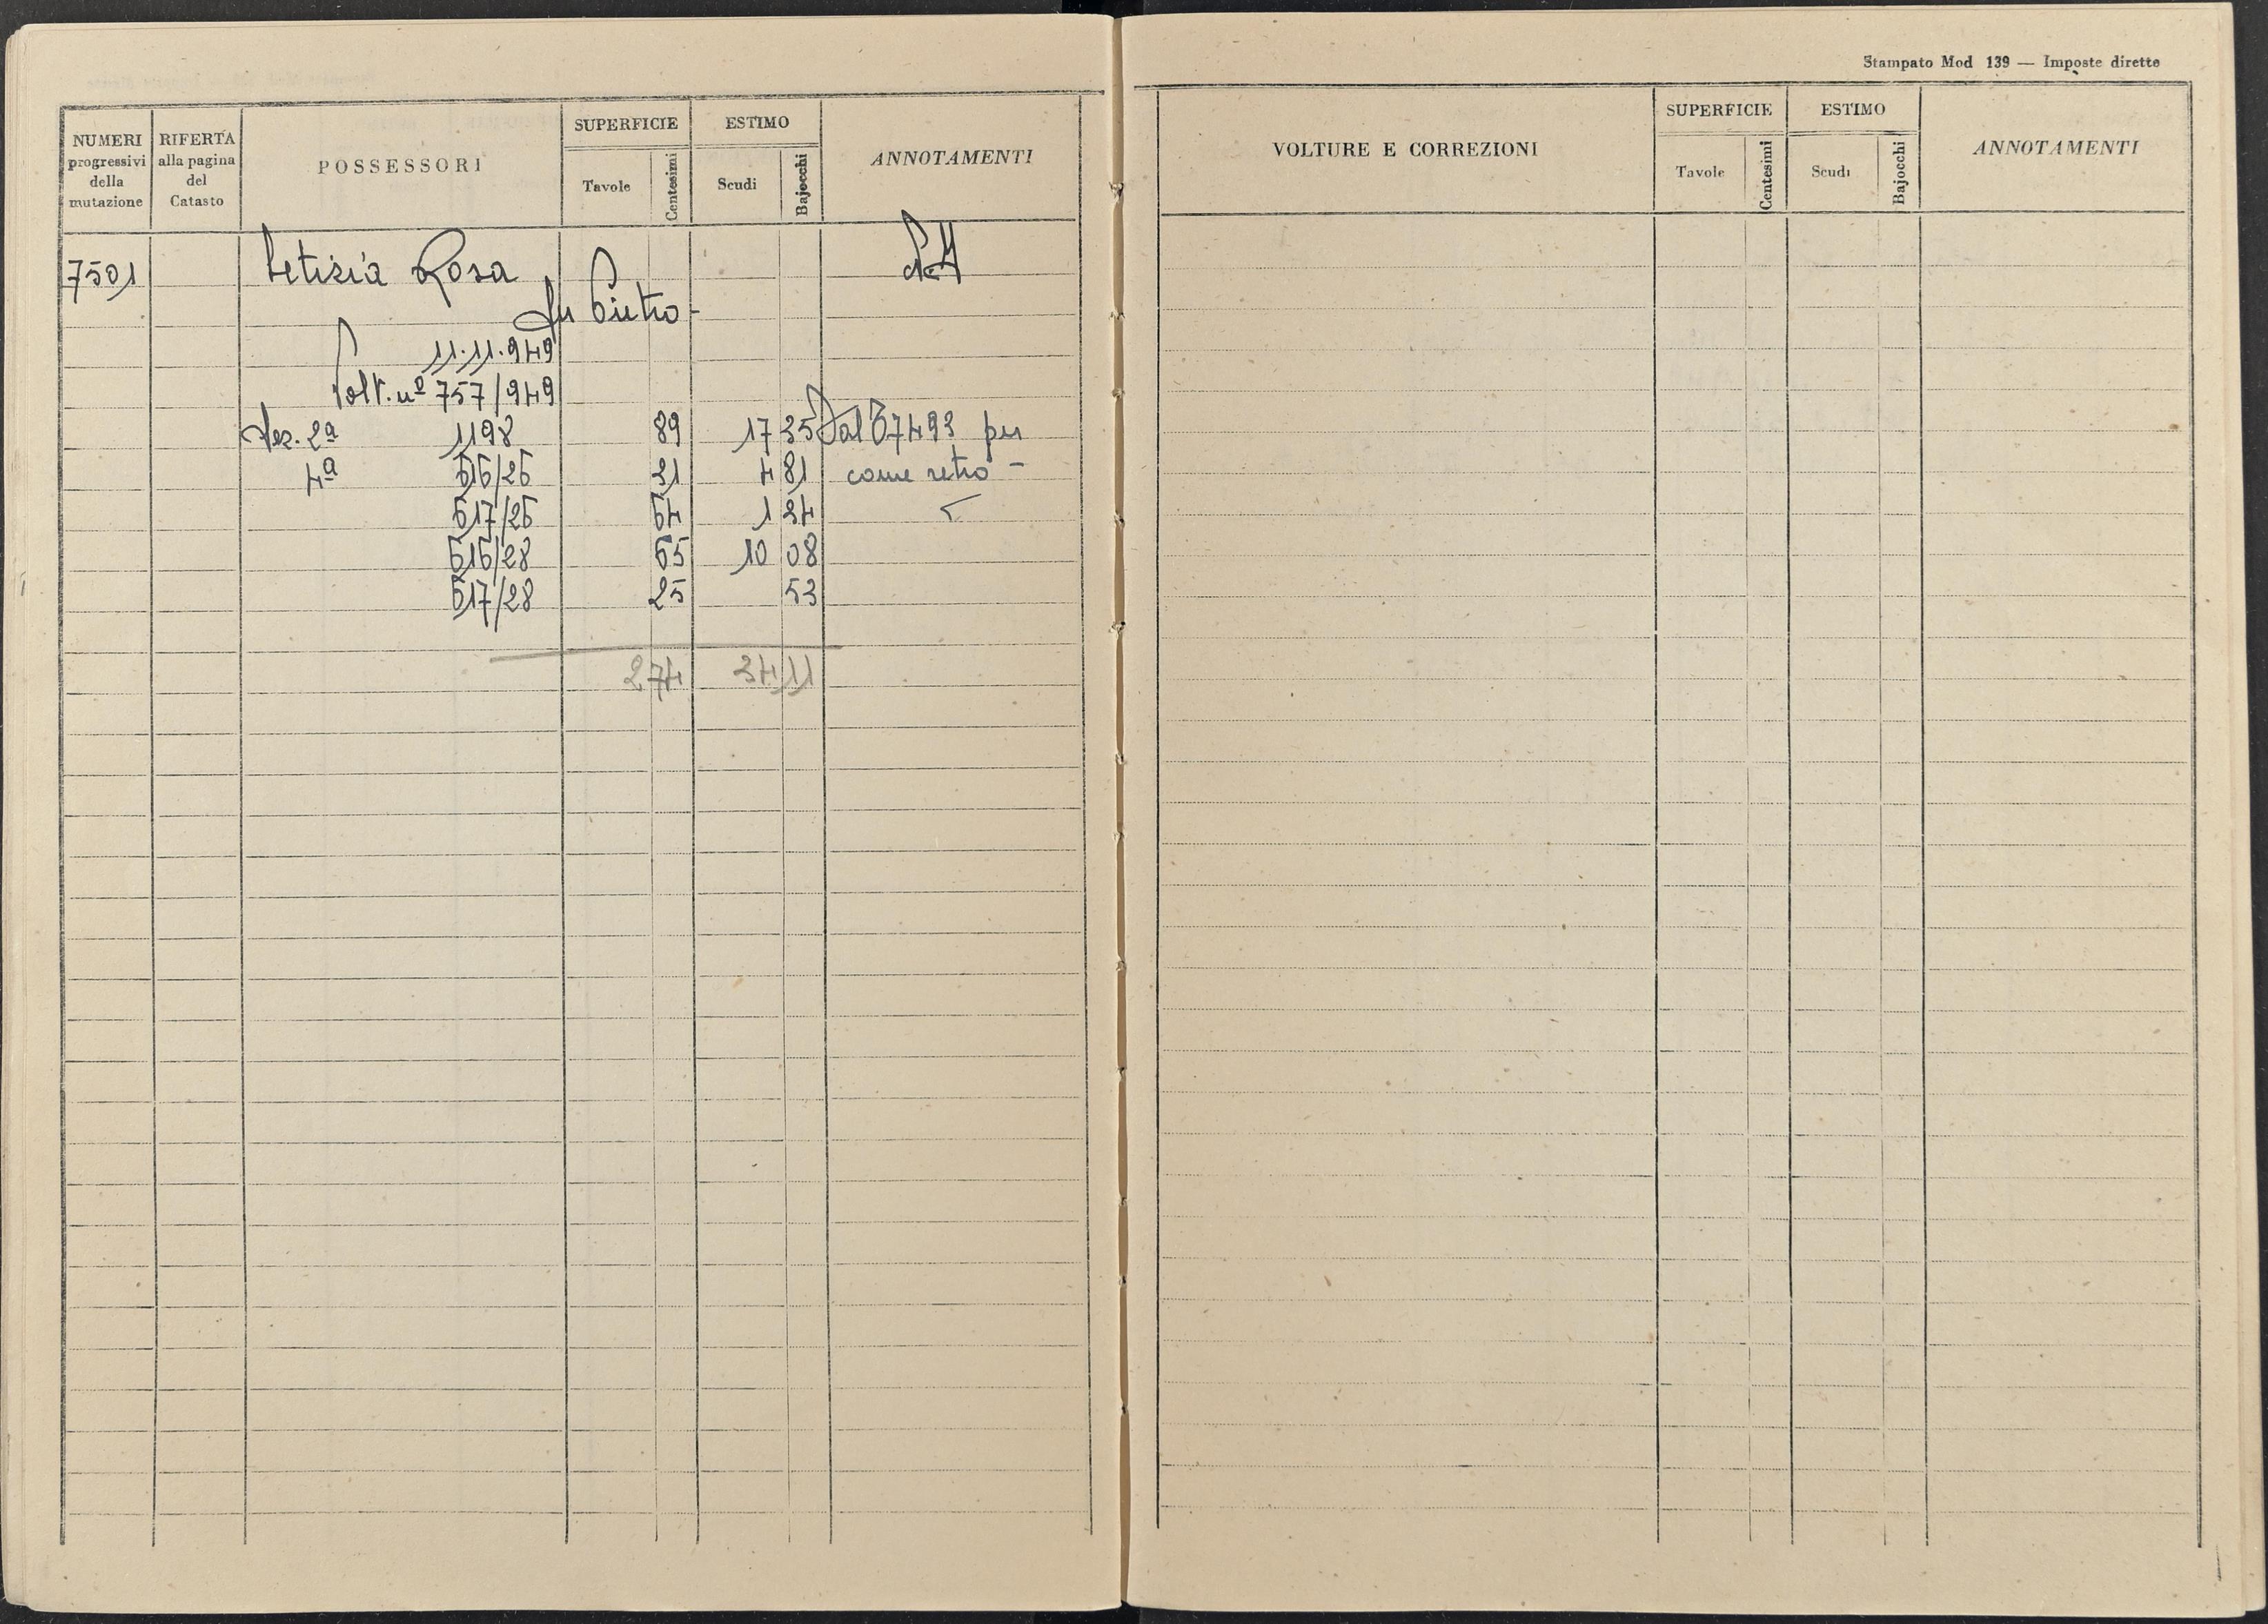 Stampato Mod 139 — Imposte dirette
NUMERI progressivi della mutazione
RIFERTA alla pagina del Catasto
POSSESSORI
SUPERFICIE
Tavole Centesimi
ESTIMO
Scudi Bajocchi
ANNOTAMENTI
VOLTURE E CORREZIONI
SUPERFICIE
Tavole Centesimi
ESTIMO
Scudi Bajocchi
ANNOTAMENTI
7501 Letizia Rosa
fu Pietro-
11.11.949
Volt. nº 757/949
Sez. 2ª 1198 89 17 35 Dal 7493 per
4ª 616/26 31 4 81 come retro -
617/26 64 1 34
616/28 65 10 08
617/28 25 53
2 74 34 11